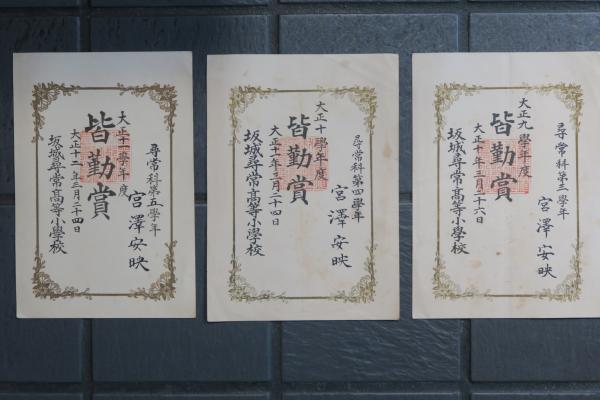 尋常科第三學年
宮澤安映
大正九學年度
皆勤賞
大正十年三月二十六日
坂城尋常高等小學校
尋常科第四學年
宮澤安映
大正十學年度
皆勤賞
大正十一年三月二十四日
坂城尋常高等小學校
尋常科第五學年
宮澤安映
大正十一學年度
皆勤賞
大正十二年三月二十四日
坂城尋常高等小學校